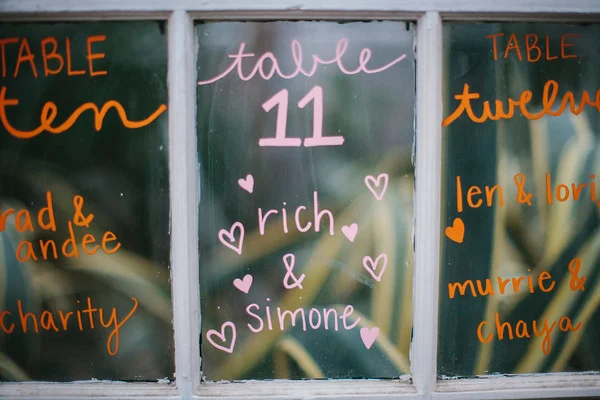 TABLE
ten
&
andee
charity
table
11
rich
&
simone
TABLE
len & lori
murrie &
chaya